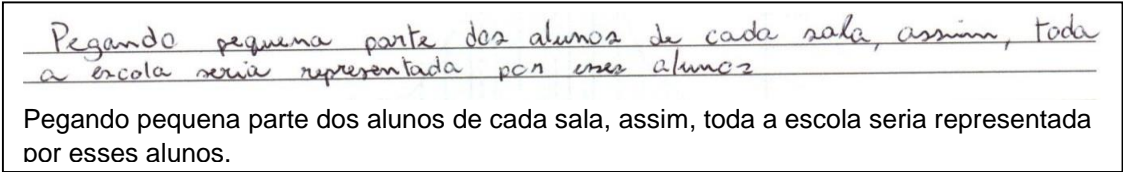 Pegando pequena parte dos alunos de cada sala, assim, toda
a escola seria representada por esses alunos
Pegando pequena parte dos alunos de cada sala, assim, toda a escola seria representada
por esses alunos.